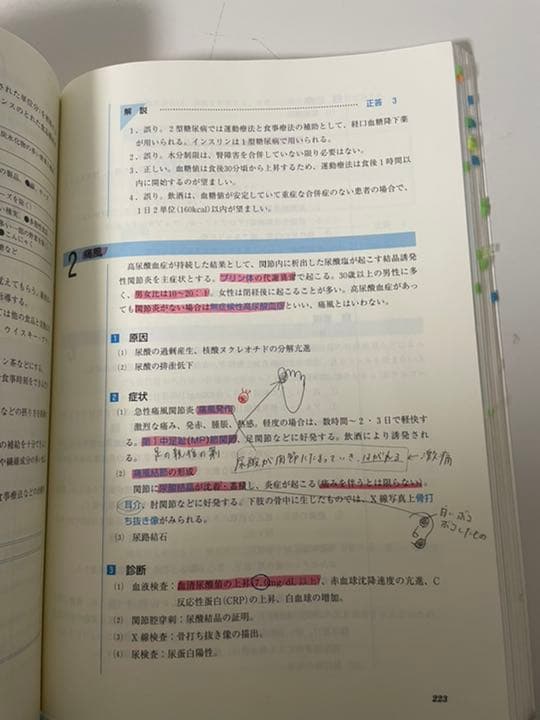 された単位分)を
ンスのとれた食
炭水化物の多い
の製品
ーズを除く)
い種実、
多い一部の野菜を除く)
など
覚えてもらう。
指導する。
ては他の食品と
ウイスキー・ブ
ン茶などにする。
食事時刻をできるだけ
などの摂り方を
の補給を十分でき
や繊維成分の多い
解 説
正答 3
1、誤り。2型糖尿病では運動療法と食事療法の補助として、経口血糖降下薬
が用いられる。インスリンは1型糖尿病で用いられる。
2、誤り。水分制限は、腎障害を合併していない限り必要はない。
3、正しい。血糖値は食後30分頃から上昇するため、運動療法は食後1時間以
内に開始するのが望ましい。
4、誤り。飲酒は、血糖値が安定していて重症な合併症のない患者の場合で、
1日2単位(160kcal)以内が望ましい。
2 痛風
高尿酸血症が持続した結果として、関節内に析出した尿酸塩が起こす結晶誘発
性関節炎を主症状とする。プリン体の代謝異常で起こる。30歳以上の男性に多
く、男女比は10〜20:1。女性は閉経後に起こることが多い。高尿酸血症があっ
ても関節炎がない場合は無症候性高尿酸血症といい、痛風とはいわない。
1 原因
(1) 尿酸の過剰産生、核酸ヌクレオチドの分解亢進
(2) 尿酸の排出低下
2 症状
(1) 急性痛風関節炎(痛風発作)
激烈な痛み、発赤、腫脹、熱感。軽度の場合は、数時間〜2・3日で軽快す
る。第1中足趾(MP)節関節、足関節などに好発する。飲酒により誘発され
る。
足の親指の裏
尿酸が関節にたまっていき、はがれる ← 激痛
(2) 痛風結節の形成
関節に尿酸結晶が沈着・蓄積し、炎症が起こる(痛みを伴うとは限らない)。
耳介、肘関節などに好発する。下肢の骨中に生じたものでは、X線写真上骨打
ち抜き像がみられる。
(3) 尿路結石
3 診断
(1) 血液検査:血清尿酸値の上昇(7.0mg/dL以上)、赤血球沈降速度の亢進、C
反応性蛋白(CRP)の上昇、白血球の増加。
(2) 関節腔穿刺:尿酸結晶の証明。
(3) X線検査:骨打ち抜き像の描出。
(4) 尿検査:尿蛋白陽性。
223